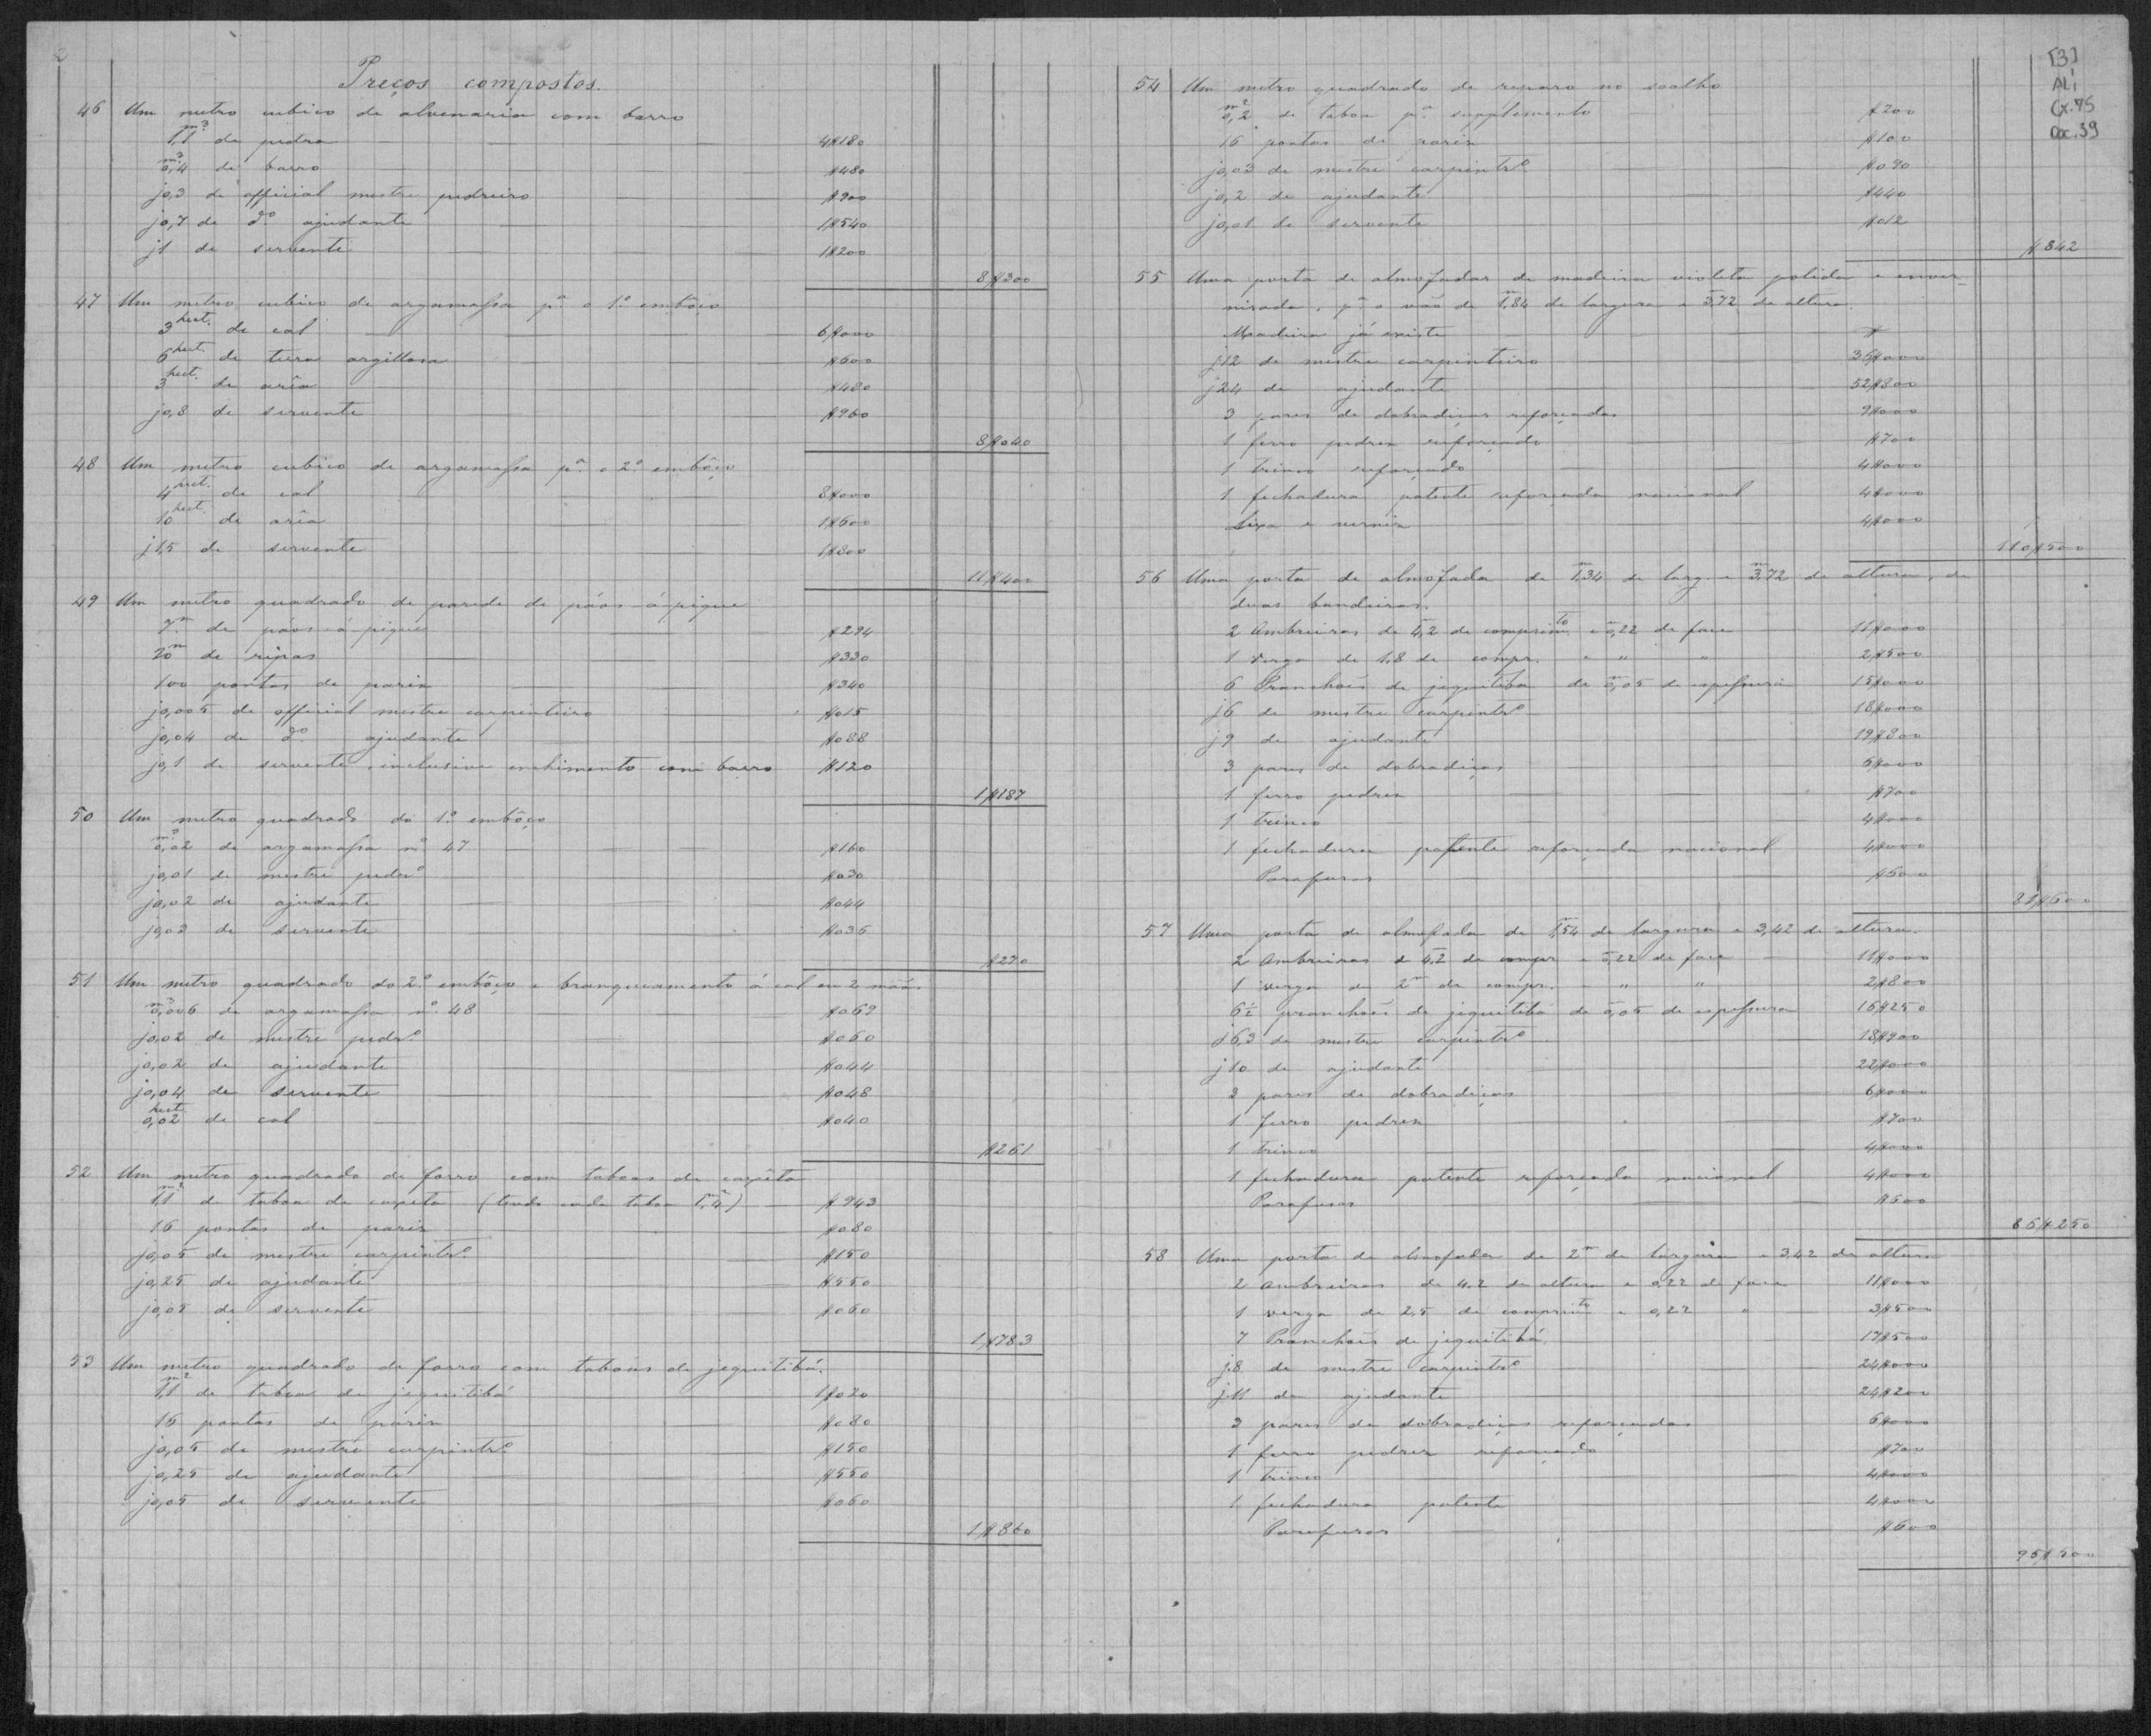 2
Preços compostos.
46 Um metro cubico de alvenaria com barro
1,1 m3 de pedra 4$180
0,4 m3 de barro $480
j0,3 de official mestre pedreiro $900
j0,7 de do. ajudante 1$540
j1 de servente 1$200
8$300
47 Um metro cubico de argamassa pa. o 1o. embôço
3 hect. de cal 6$000
6 hect. de terra argillosa $600
3 hect. de arêa $480
j0,8 de servente $960
8$040
48 Um metro cubico de argamassa pa. o 2o. embôço
4 hect. de cal 8$000
10 hect. de arêa 1$600
j1,5 de servente 1$800
11$400
49 Um metro quadrado de parede de páos-á-pique
7m de páos-á-pique $294
20m de ripas $330
100 pontas de pariz $340
j0,005 de official mestre carpinteiro $015
j0,04 de do. ajudante $088
j0,1 de servente, inclusive enchimento com barro $120
1$187
50 Um metro quadrado do 1o. embôço
0,02 m3 de argamassa no. 47 $160
j0,01 de mestre pedro. $030
j0,02 de ajudante $044
j0,03 de servente $036
$270
51 Um metro quadrado do 2o. embôço e branqueamento á cal em 2 mãos.
0,006 m3 de argamassa no. 48 $069
j0,02 de mestre pedro. $060
j0,02 de ajudante $044
j0,04 de servente $048
0,02 hect. de cal $040
$261
52 Um metro quadrado de forro com taboas de capêta
1,1 m2 de taboa de capeta (tendo cada taboa 1,4 m2) $943
16 pontas de pariz $080
j0,05 de mestre carpintro. $150
j0,25 de ajudante $550
j0,05 de servente $060
1$783
53 Um metro quadrado de forro com taboas de jequitibá.
1,1 m2 de taboa de jequitibá 1$020
16 pontas de pariz $080
j0,05 de mestre carpintro. $150
j0,25 de ajudante $550
j0,05 de servente $060
1$860
[3]
ALi
Cx.75
Doc.39
54 Um metro quadrado de reparo no soalho
0,2 m2 de taboa pa. supplemento $200
16 pontas de pariz $100
j0,03 de mestre carpintro. $090
j0,2 de ajudante $440
j0,01 de servente $012
$842
55 Uma porta de almofadas de madeira violeta polida e enver-
nisada, pa. o vão de 1,84 m de largura e 3,72 m de altura.
Madeira já existe $
j12 de mestre carpinteiro 36$000
j24 de ajudante 52$800
3 pares de dobradiças reforçadas 9$000
1 ferro pedrez reforçado $700
1 trinco reforçado 4$000
1 fechadura patente reforçada nacional 4$000
Lixa e verniz 4$000
110$500
56 Uma porta de almofada de 1,34 m de larg. e 3,72 m de altura, de
duas bandeiras.
2 Ombreiras de 4,2 m de comprimto e 0,22 m de face 11$000
1 Verga de 1,8 de compr. e " " 2$500
6 Pranchões de jequitibá de 0,05 m de espessura 15$000
j6 de mestre carpintro. 18$000
j9 de ajudante 19$800
3 pares de dobradiças 6$000
1 ferro pedrez $700
1 trinco 4$000
1 fechadura patente reforçada nacional 4$000
Parafusos $600
81$600
57 Uma porta de almofada de 1,54 m de largura e 3,42 de altura.
2 Ombreiras de 4,2 m de compr. e 0,22 m de face 11$000
1 verga de 2m de compr. e " " 2$800
6½ pranchões de jequitibá de 0,05 m de espessura 16$250
j6,3 de mestre carpintro. 18$900
j10 de ajudante 22$000
3 pares de dobradiças 6$000
1 ferro pedrez $700
1 trinco 4$000
1 fechadura patente reforçada nacional 4$000
Parafusos $600
86$250
58 Uma porta de almofada de 2m de largura e 3,42 de altura
2 ombreiras de 4,2 de altura e 0,22 de face 11$000
1 verga de 2,5 de comprimto e 0,22 " 3$500
7 Pranchões de jequitibá 17$500
j8 de mestre carpintro. 24$000
j11 de ajudante 24$200
3 pares de dobradiças reforçadas 6$000
1 ferro pedrez reforçado $700
1 trinco 4$000
1 fechadura patente 4$000
Parafusos $600
95$500